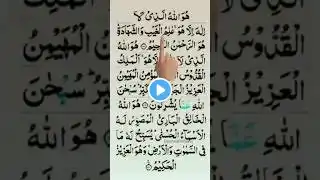 هُوَ اللهُ الَّذِىْ لَاۤ
اِلٰهَ اِلَّا هُوَ عٰلِمُ الْغَيْبِ وَالشَّهَادَةِ
هُوَ الرَّحْمٰنُ هُوَ اللهُ
الْقُدُّوْسُ الْمُهَيْمِنُ
الَّذِىْ لَاۤ هُوَ اَلْمَلِكُ
الْقُدُّوْسُ الْمُؤْمِنُ الْمُهَيْمِنُ
الْعَزِيْزُ سُبْحٰنَ
اللهِ عَمَّا يُشْرِكُوْنَ هُوَ اللهُ
الْخَالِقُ الْبَارِئُ الْمُصَوِّرُ لَهُ
الْاَسْمَآءُ الْحُسْنٰى يُسَبِّحُ لَهٗ مَا
فِى السَّمٰوٰتِ وَالْاَرْضِ وَهُوَ الْعَزِيْزُ
الْحَكِيْمُ